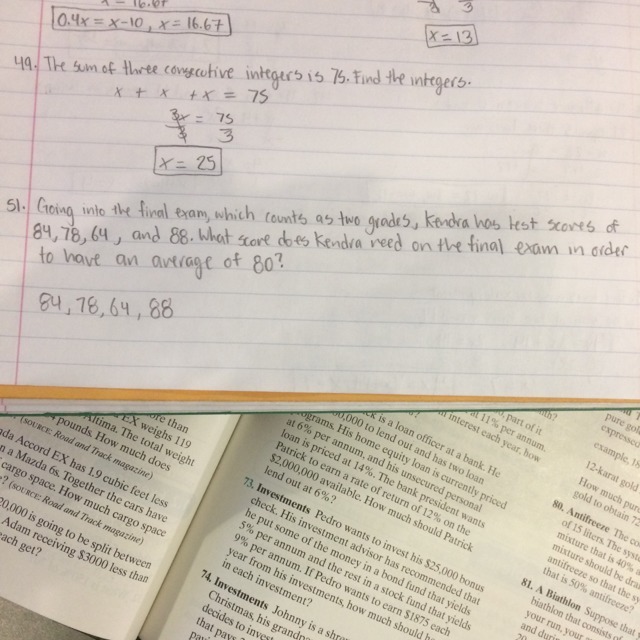 0.4x = x-10, x = 16.67
x = 13
49. The sum of three consecutive integers is 75. Find the integers.
x + x + x = 75
3x = 75
3 3
x = 25
51. Going into the final exam, which counts as two grades, Kendra has test scores of
84, 78, 64, and 88. What score does Kendra need on the final exam in order
to have an average of 80?
84, 78, 64, 88
more than
EX weighs 119
Altima. The total weight
pounds. How much does
(SOURCE: Road and Track magazine)
Accord EX has 1.9 cubic feet less
a Mazda 6s. Together the cars have
cargo space. How much cargo space
? (SOURCE: Road and Track magazine)
20,000 is going be split between
Adam receiving $3000 less than
each get?
is a loan officer at a bank. He
to lend out and has two loan
His home equity loan is currently priced
at 6% per annum, and his unsecured personal
loan is priced at 14%. The bank president wants
Patrick to earn a rate of return of 12% on the
$2,000,000 available. How much should Patrick
lend out at 6%?
73. Investments Pedro wants to invest his $25,000 bonus
check. His investment advisor has recommended that
he put some of the money in a bond fund that yields
5% per annum and the rest in a stock fund that yields
9% per annum. If Pedro wants to earn $1875 each
year from his investments, how much should he
in each investment?
74. Investments Johnny is a
Christmas, his
decides to invest
that pays
part of it
at 11% per annum
in interest each year, how
pure gold
expression
example,
12-karat gold
How much pure
gold to obtain
80. Antifreeze The
of 15 liters. The
mixture that is 40%
mixture should be
antifreeze so that the
that is 50% antifreeze?
81. A Biathlon Suppose that
biathlon that consists
your run, your
and